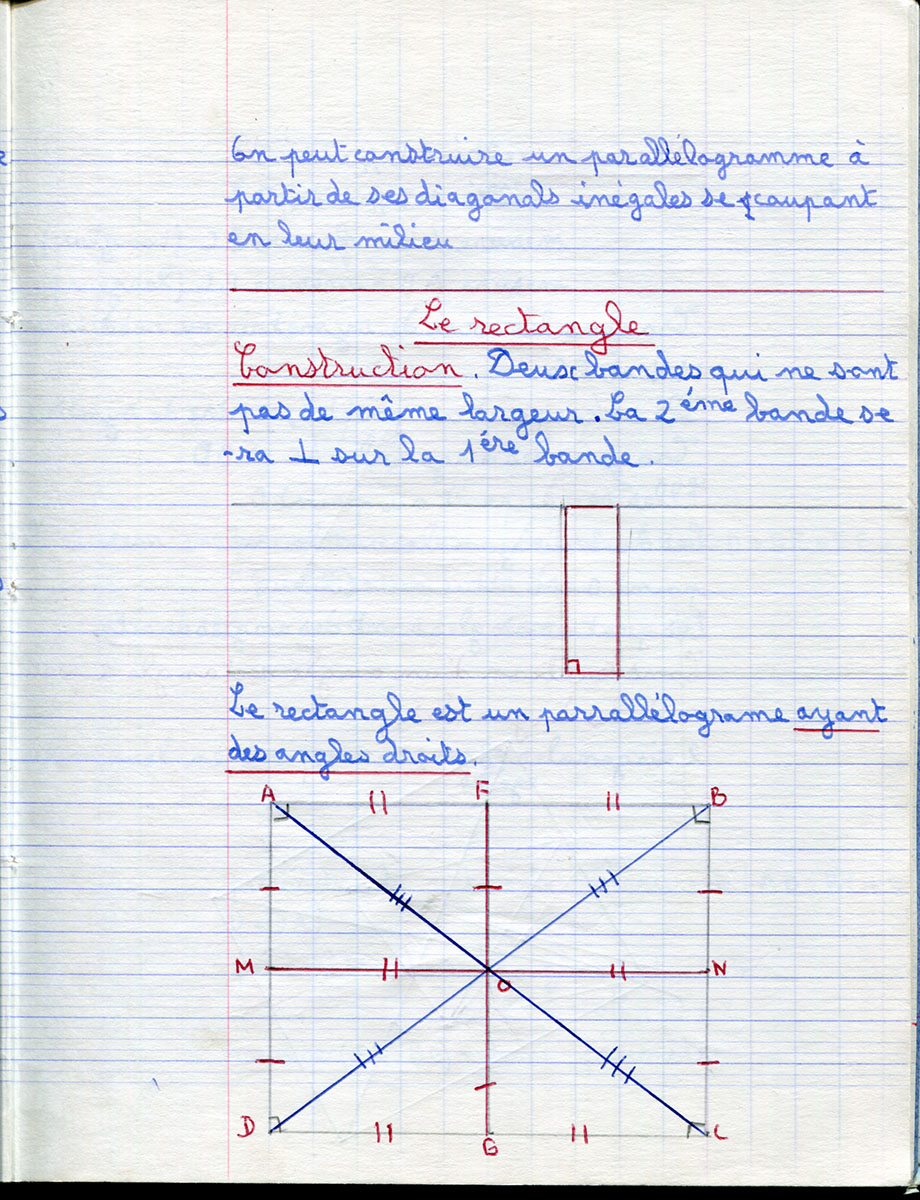 On peut construire un parallélogramme à
partir de ses diagonals inégales se coupant
en leur milieu
Le rectangle
Construction. Deux bandes qui ne sont
pas de même largeur. La 2ème bande se
-ra ⊥ sur la 1ére bande.
Le rectangle est un parrallélograme ayant
des angles droits.
A F B
M N
O
D G C